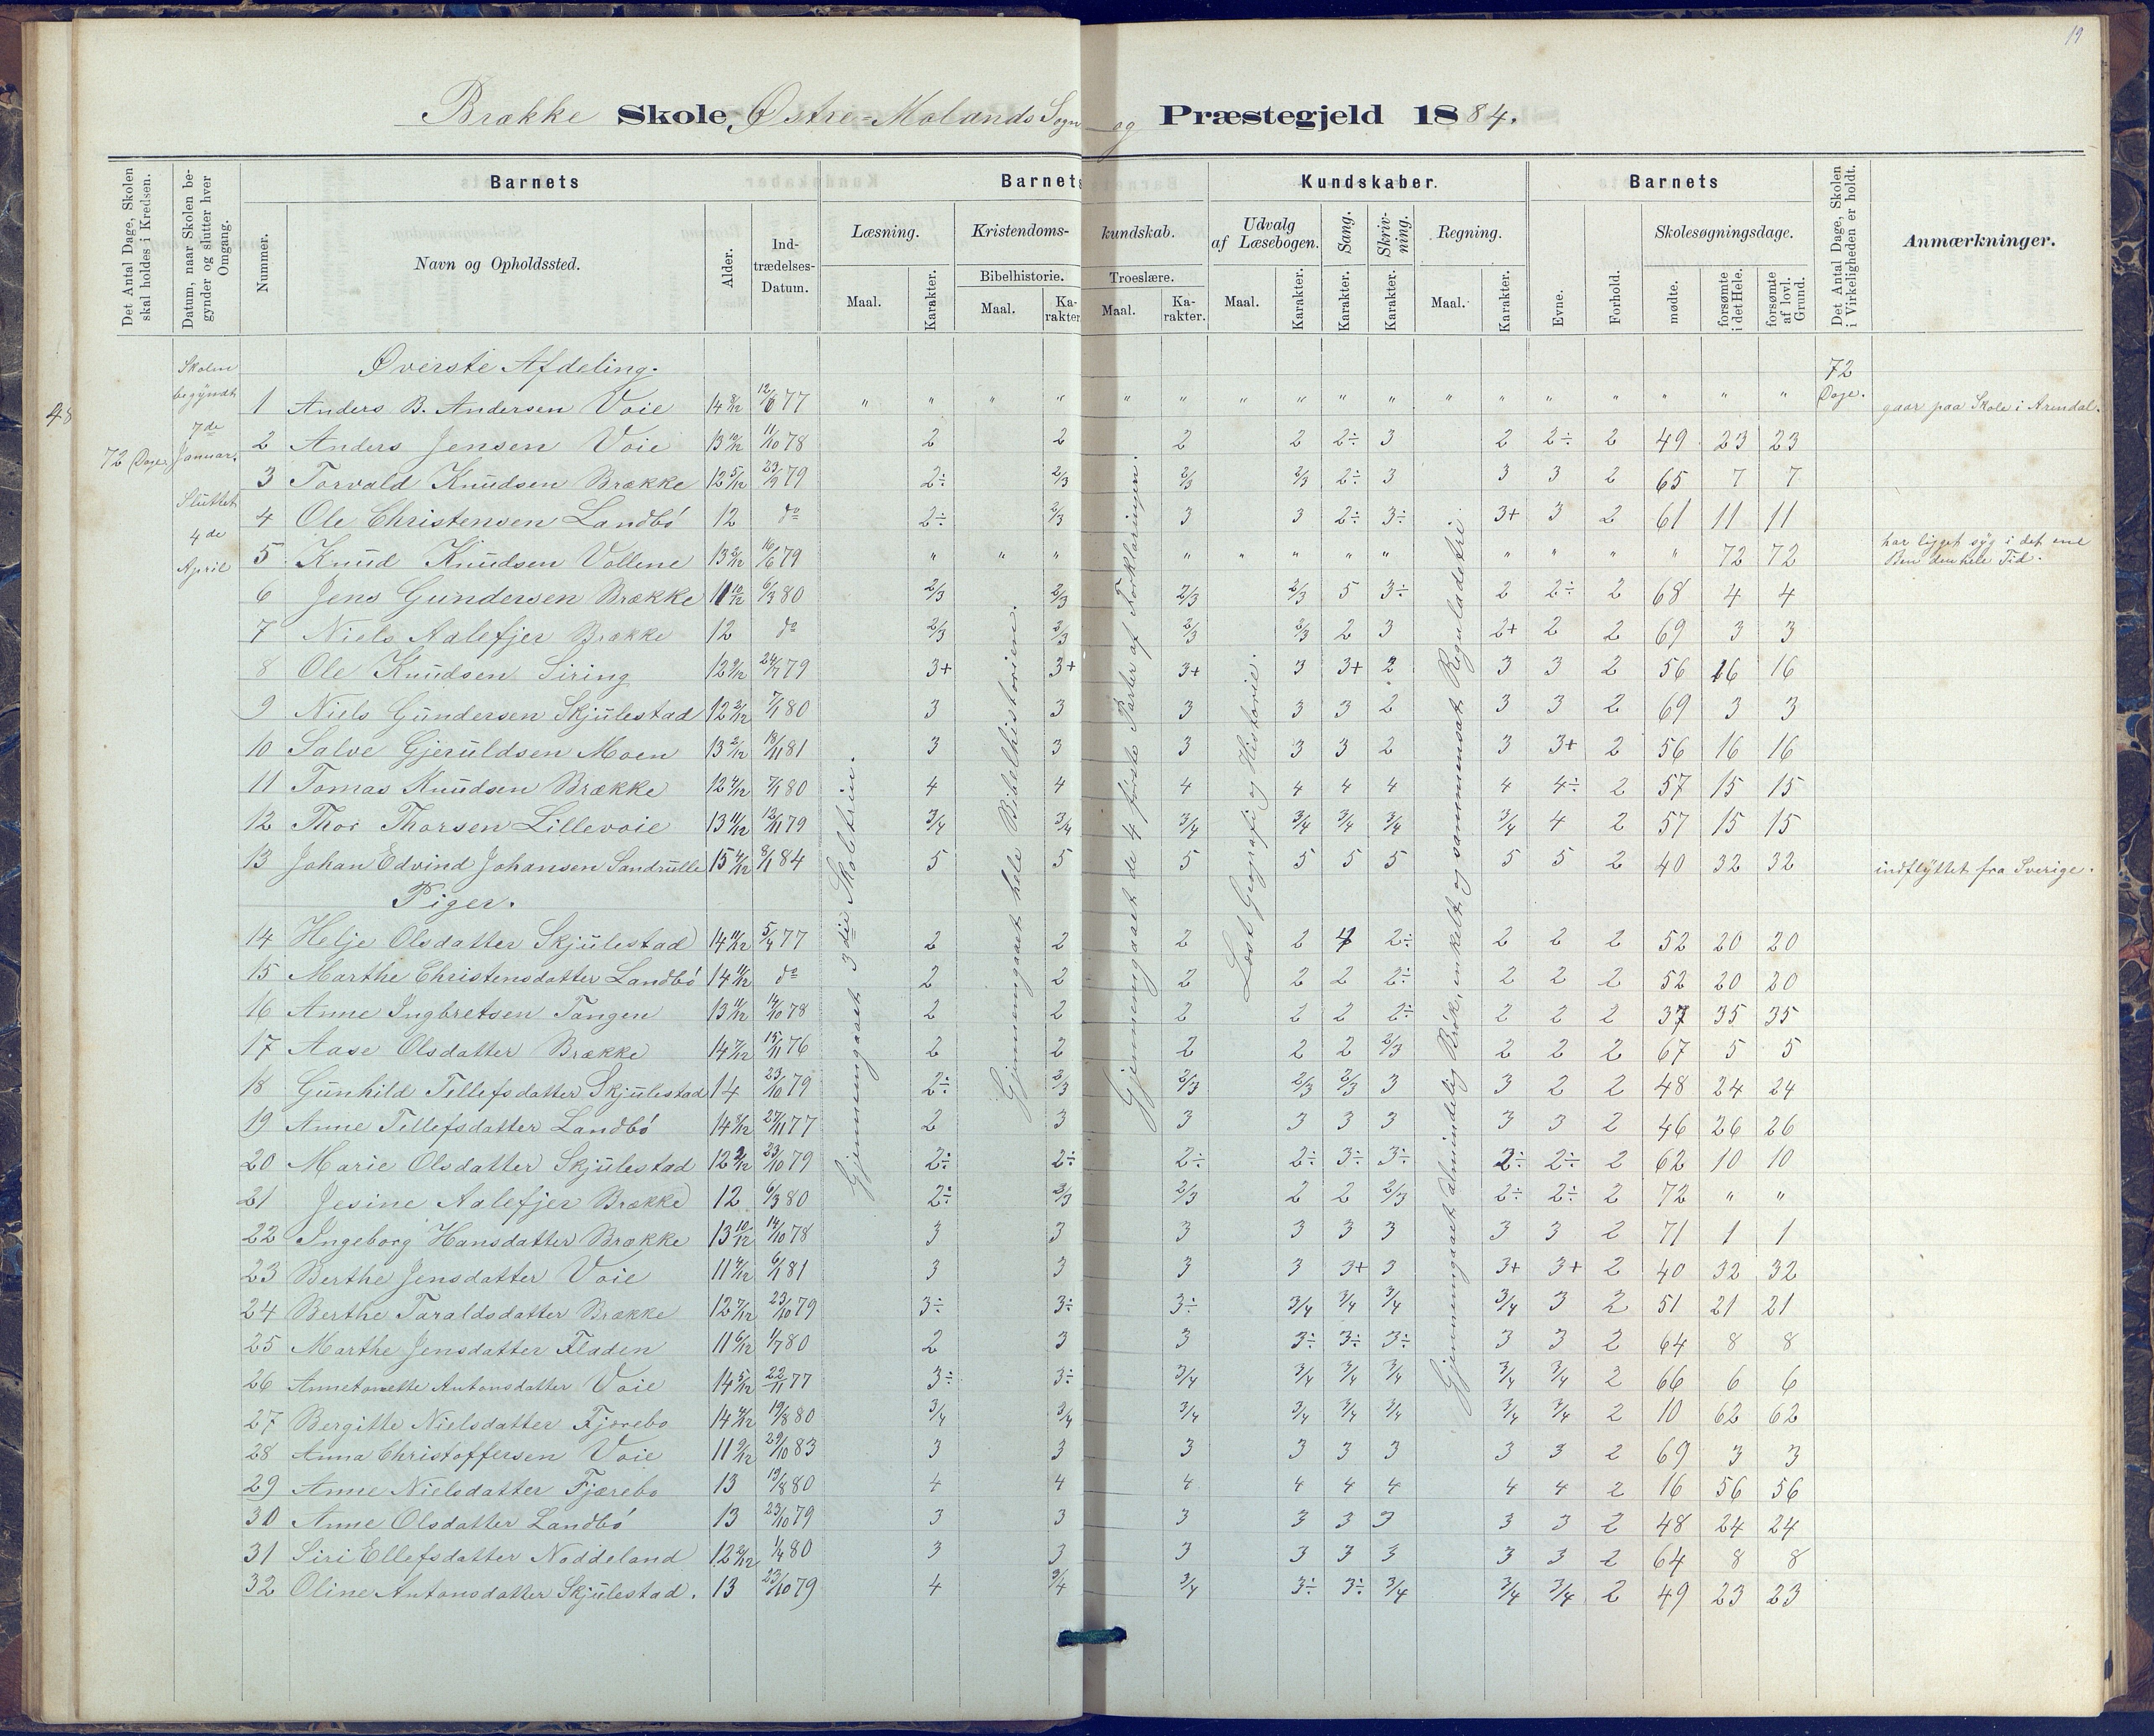 19
Brække Skole, Østre-Molands Sogn og Præstegjeld 1884.
Det Antal Dage, Skolen skal holdes i Kredsen.
Datum, naar Skolen begynder og slutter hver Omgang.
Barnets
Barnets Kundskaber.
Barnets
Det Antal Dage, Skolen i Virkeligheden er holdt.
Anmærkninger.
Nummer.
Navn og Opholdssted.
Alder.
Indtrædelses-Datum.
Læsning.
Kristendoms-kundskab.
Udvalg af Læsebogen.
Sang.
Skrivning.
Regning.
Evne.
Forhold.
Skolesøgningsdage.
Bibelhistorie.
Troeslære.
Maal.
Karakter.
Maal.
Karakter.
Maal.
Karakter.
Maal.
Karakter.
Karakter.
Karakter.
Maal.
Karakter.
mødte.
forsømte i det Hele.
forsømte af lovl. Grund.
48
72 Dage
Skolen
begyndt
7de
Januar.
Sluttet
4de
April
72
Dage.
Gjennemgaaet 3die Skoletrin.
Gjennemgaaet hele Bibelhistorien.
Gjennemgaaet de 4 første Parter af Forklaringen.
Læst Geografi og Historie.
Gjennemgaaet almindelig Brøk, enkelt og sammensat Reguladetri.
Øverste Afdeling.
1 Anders B. Andersen Voie 14 8/12 12/6 77 " " " " " " " " " " " " " " " " gaar paa Skole i Arendal.
2 Anders Jensen Voie 13 10/12 11/10 78 2 2 2 2 2÷ 3 2 2÷ 2 49 23 23
3 Torvald Knudsen Brække 12 5/12 79 2÷ 2/3 2/3 2/3 2÷ 3 3 3 2 65 7 7
4 Ole Christensen Landbö 12 do 2÷ 2/3 3 3 2÷ 3÷ 3+ 3 2 61 11 11
5 Knud Knudsen Vollene 13 2/12 16/6 79 " " " " " " " " " " " " 72 72 har ligget syg i det ene
Ben den hele Tid.
6 Jens Gundersen Brække 11 10/12 6/3 80 2/3 2/3 2/3 2/3 5 3÷ 2 2÷ 2 68 4 4
7 Niels Aalefjer Brække 12 do 2/3 2/3 2/3 2/3 2 3 2+ 2 2 69 3 3
8 Ole Knudsen Siring 12 9/12 24/7 79 3+ 3+ 3+ 3 3+ 2 3 3 2 56 16 16
9 Niels Gundersen Skjulestad 12 3/12 7/1 80 3 3 3 3 3 2 3 3 2 69 3 3
10 Salve Gjeruldsen Moen 13 2/12 18/11 81 3 3 3 3 3 2 3 3+ 2 56 16 16
11 Tomas Knudsen Brække 12 4/12 7/1 80 4 4 4 4 4 4 4 4÷ 2 57 15 15
12 Thor Thorsen Lillevoie 13 11/12 12/11 79 3/4 3/4 3/4 3/4 3/4 3/4 3/4 4 2 57 15 15
13 Johan Edvind Johansen Sandrulle 15 4/12 8/1 84 5 5 5 5 5 5 5 5 2 40 32 32 indflyttet fra Sverige.
Piger.
14 Helje Olsdatter Skjulestad 14 11/12 5/4 77 2 2 2 2 4 2÷ 2 2 2 52 20 20
15 Marthe Christensdatter Landbö 14 11/12 do 2 2 2 2 2 2÷ 2 2 2 52 20 20
16 Anne Ingbretsen Tangen 13 11/12 14/10 78 2 2 2 2 2 2÷ 2 2 2 37 35 35
17 Aase Olsdatter Brække 14 7/12 15/11 76 2 2 2 2 2 2/3 2 2 2 67 5 5
18 Gunhild Tellefsdatter Skjulestad 14 23/10 79 2÷ 2/3 2/3 2/3 2/3 3 3 2 2 48 24 24
19 Anne Tellefsdatter Landbö 14 8/12 27/11 77 2 3 3 3 3 3 3 3 2 46 26 26
20 Marie Olsdatter Skjulestad 12 2/12 23/10 79 2÷ 2÷ 2÷ 2÷ 3÷ 3÷ 2÷ 2÷ 2 62 10 10
21 Jesine Aalefjer Brække 12 6/3 80 2÷ 2/3 2/3 2 2 2/3 2÷ 2÷ 2 72 " "
22 Ingeborg Hansdatter Brække 13 10/12 14/10 78 3 3 3 3 3 3 3 3 2 71 1 1
23 Berthe Jensdatter Voie 11 4/12 6/1 81 3 3 3 3 3+ 3 3+ 3+ 2 40 32 32
24 Berthe Taraldsdatter Brække 12 7/12 23/10 79 3÷ 3÷ 3÷ 3/4 3/4 3/4 3/4 3 2 51 21 21
25 Marthe Jensdatter Fladen 11 6/12 1/7 80 2 3 3 3÷ 3÷ 3÷ 3 3 2 64 8 8
26 Annetonette Antonsdatter Voie 14 5/12 22/11 77 3÷ 3÷ 3/4 3/4 3/4 3/4 3/4 3/4 2 66 6 6
27 Bergitte Nielsdatter Fjærebo 14 4/12 19/8 80 3/4 3/4 3/4 3/4 3/4 3/4 3/4 3/4 2 10 62 62
28 Anna Christoffersen Voie 11 9/12 29/10 83 3 3 3 3 3 3 3 3 2 69 3 3
29 Anne Nielsdatter Fjærebo 13 19/8 80 4 4 4 4 4 4 4 4 2 16 56 56
30 Anne Olsdatter Landbö 13 23/10 79 3 3 3 3 3 3 3 3 2 48 24 24
31 Siri Ellefsdatter Noddeland 12 2/12 1/4 80 3 3 3 3 3 3 3 3 2 64 8 8
32 Oline Antonsdatter Skjulestad. 13 23/10 79 4 3/4 3/4 3÷ 3÷ 3/4 3/4 3/4 2 49 23 23